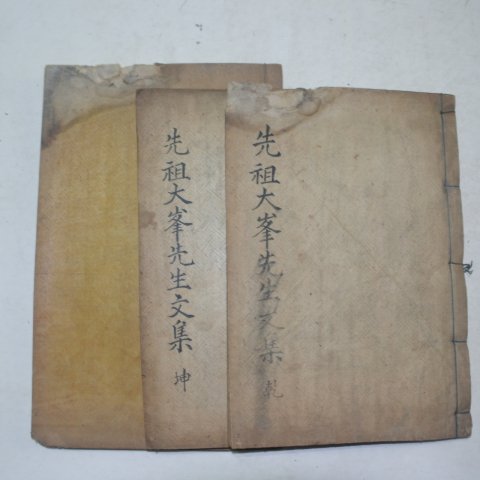 先祖大峯先生文集 乾
先祖大峯先生文集 坤